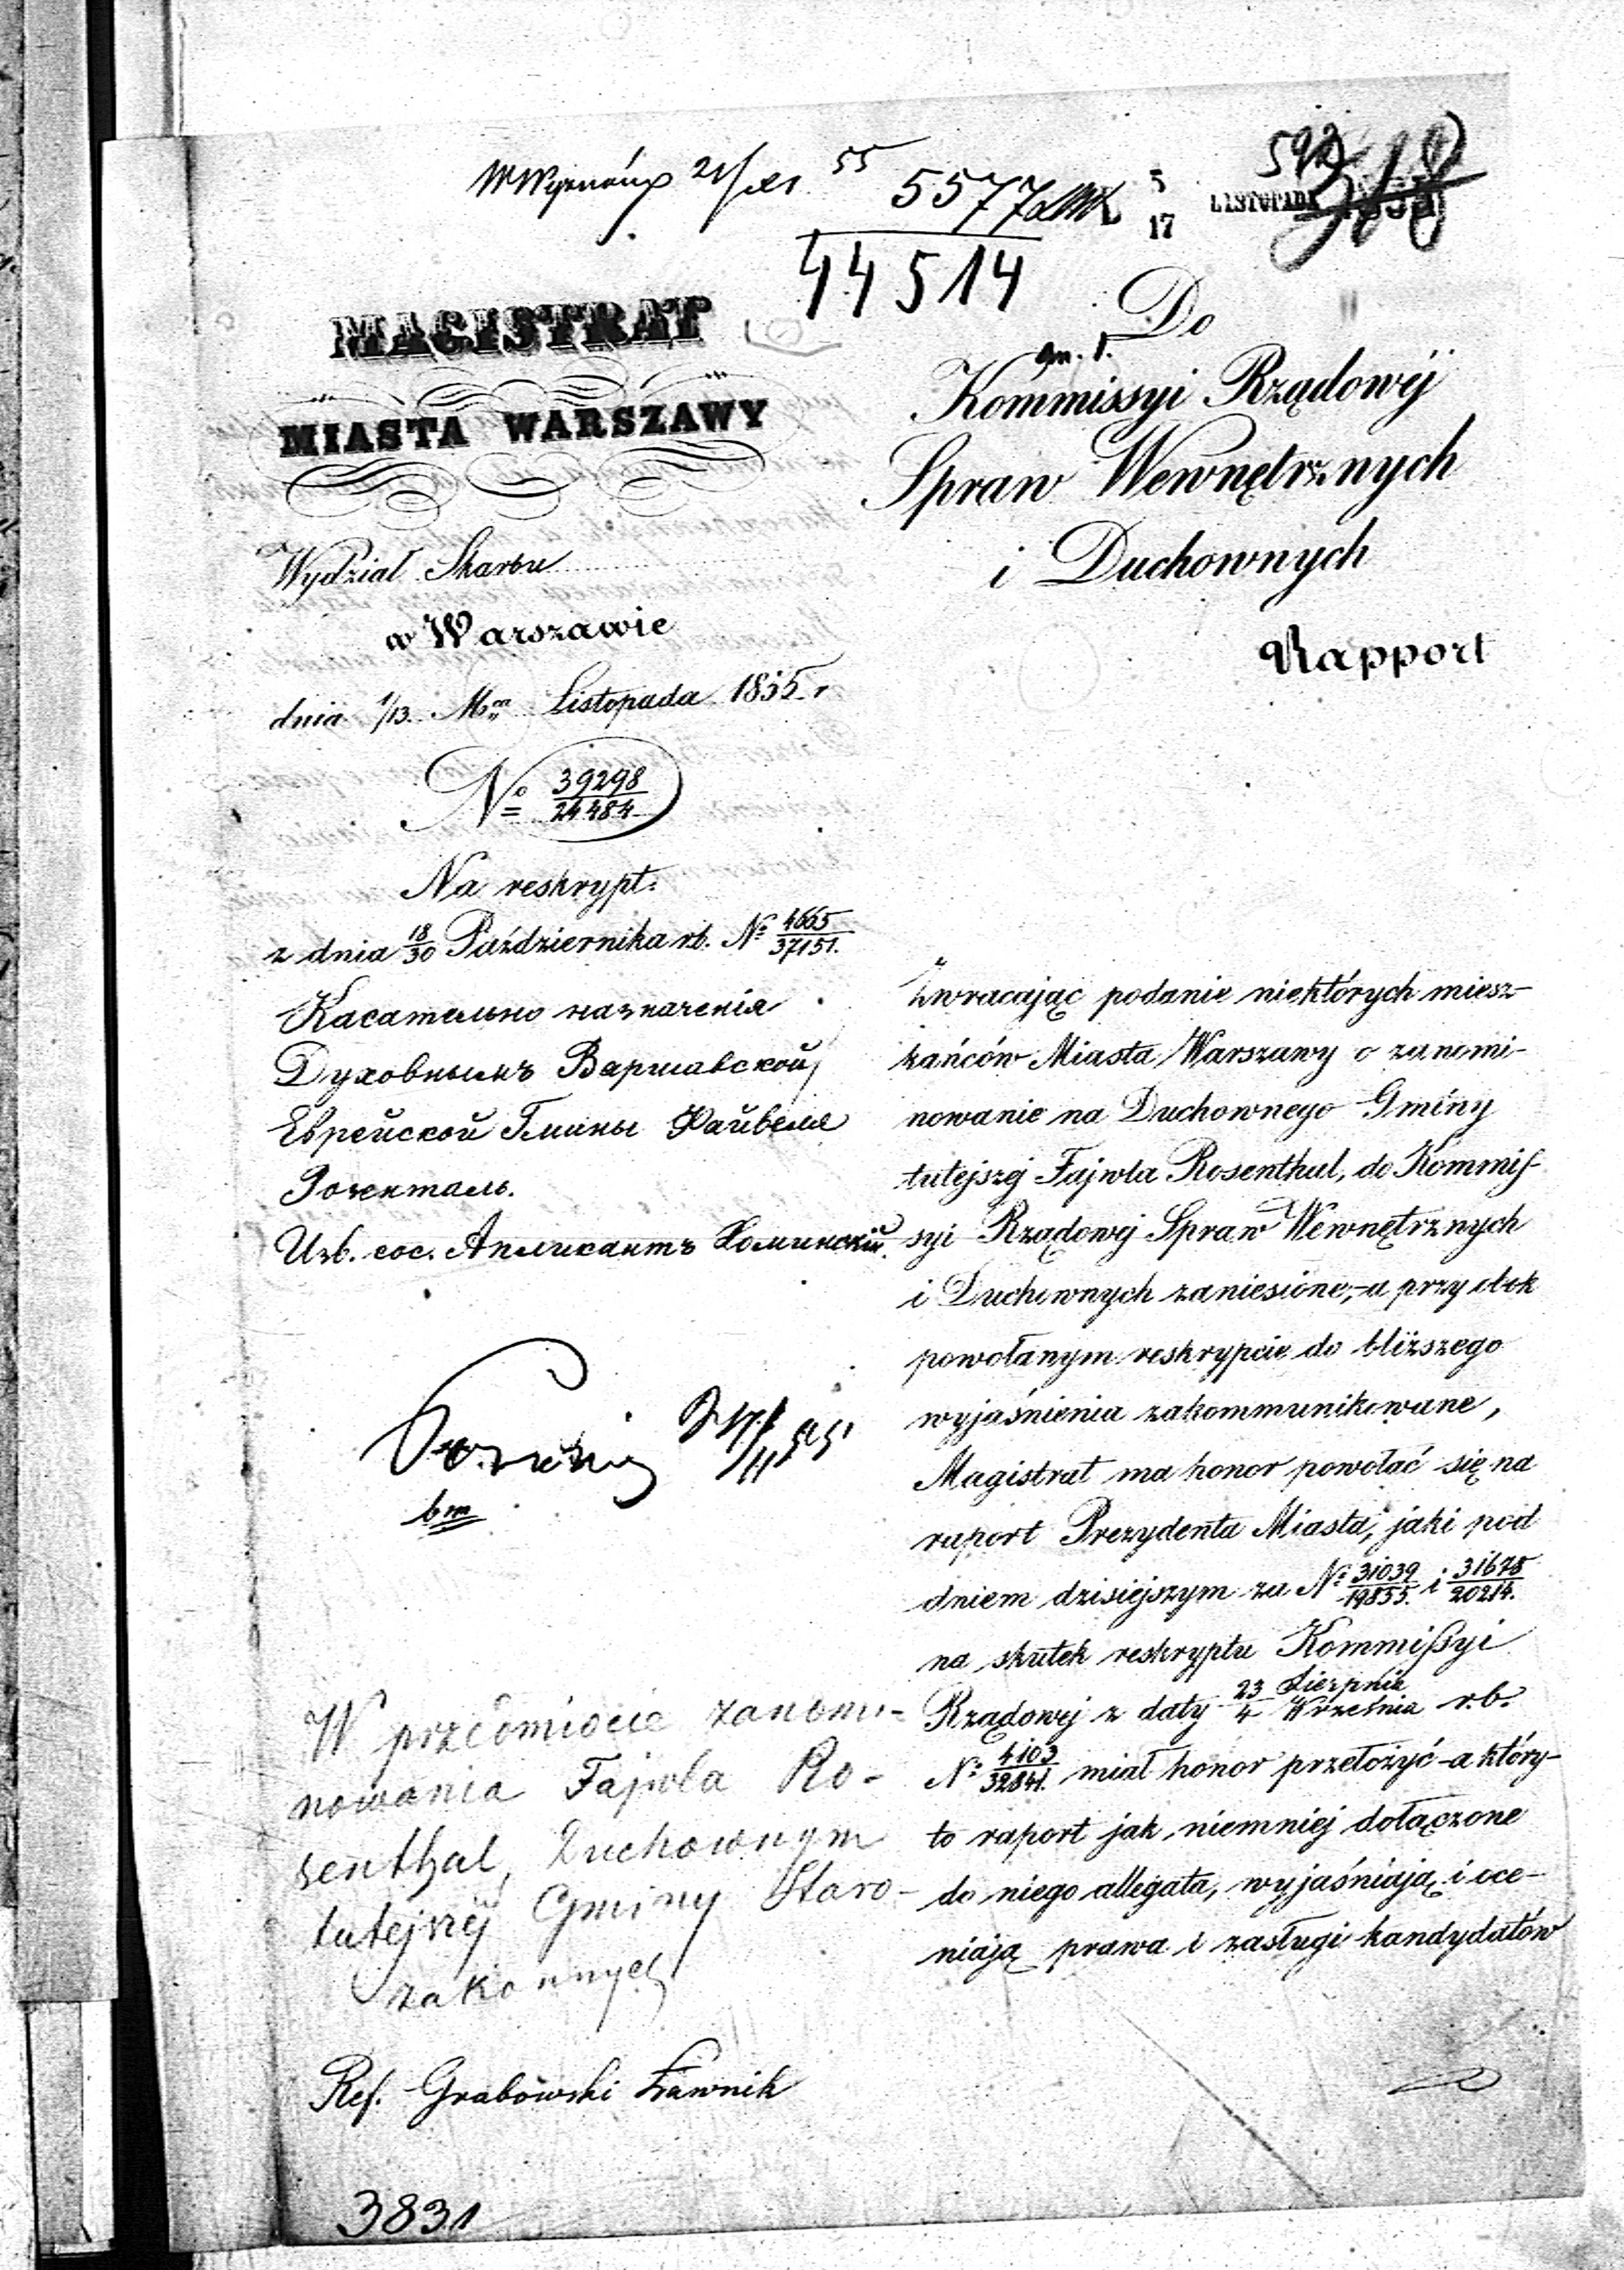 21/XI 55
5577
44514
5
17
LISTOPADA
592
MAGISTRAT
MIASTA WARSZAWY
Wydział Skarbu
w Warszawie
dnia 1/13 Mca Listopada 1855 r
No 39298
24484
Na reskrypt
z dnia 18/30 Października rb. No 4665/37151.
Касательно назначенія
Духовнымъ Варшавской
Еврейской Гмины Файвеля
Розенталь.
Изб. сос. Аппликантъ
17/11 55
bm
W przedmiocie zanomi-
nowania Fajwla Ro-
senthal, Duchownym
tutejszéj Gminy Staro-
zakonnych
Ref. Grabowski Ławnik
3831
Do
Kommissyi Rządowéj
Spraw Wewnętrznych
i Duchownych
Rapport
Zwracając podanie niektórych miesz-
kańców Miasta Warszawy o zanomi-
nowanie na Duchownego Gminy
tutejszej Fajwla Rosenthal, do Kommis-
syi Rządowej Spraw Wewnętrznych
i Duchownych zaniesione, – a przy obok
powołanym reskrypcie do bliższego
wyjaśnienia zakommunikowane,
Magistrat ma honor powołać się na
raport Prezydenta Miasta, jaki pod
dniem dzisiejszym za No 31039/19855. i 31678/20214.
na skutek reskryptu Kommissyi
Rządowej z daty 23 Sierpnia/4 Września r.b.
No 4103/32841. miał honor przełożyć – a który-
to raport jak niemniej dołączone
do niego allegata, wyjaśniają i oce-
niają prawa i zasługi kandydatów